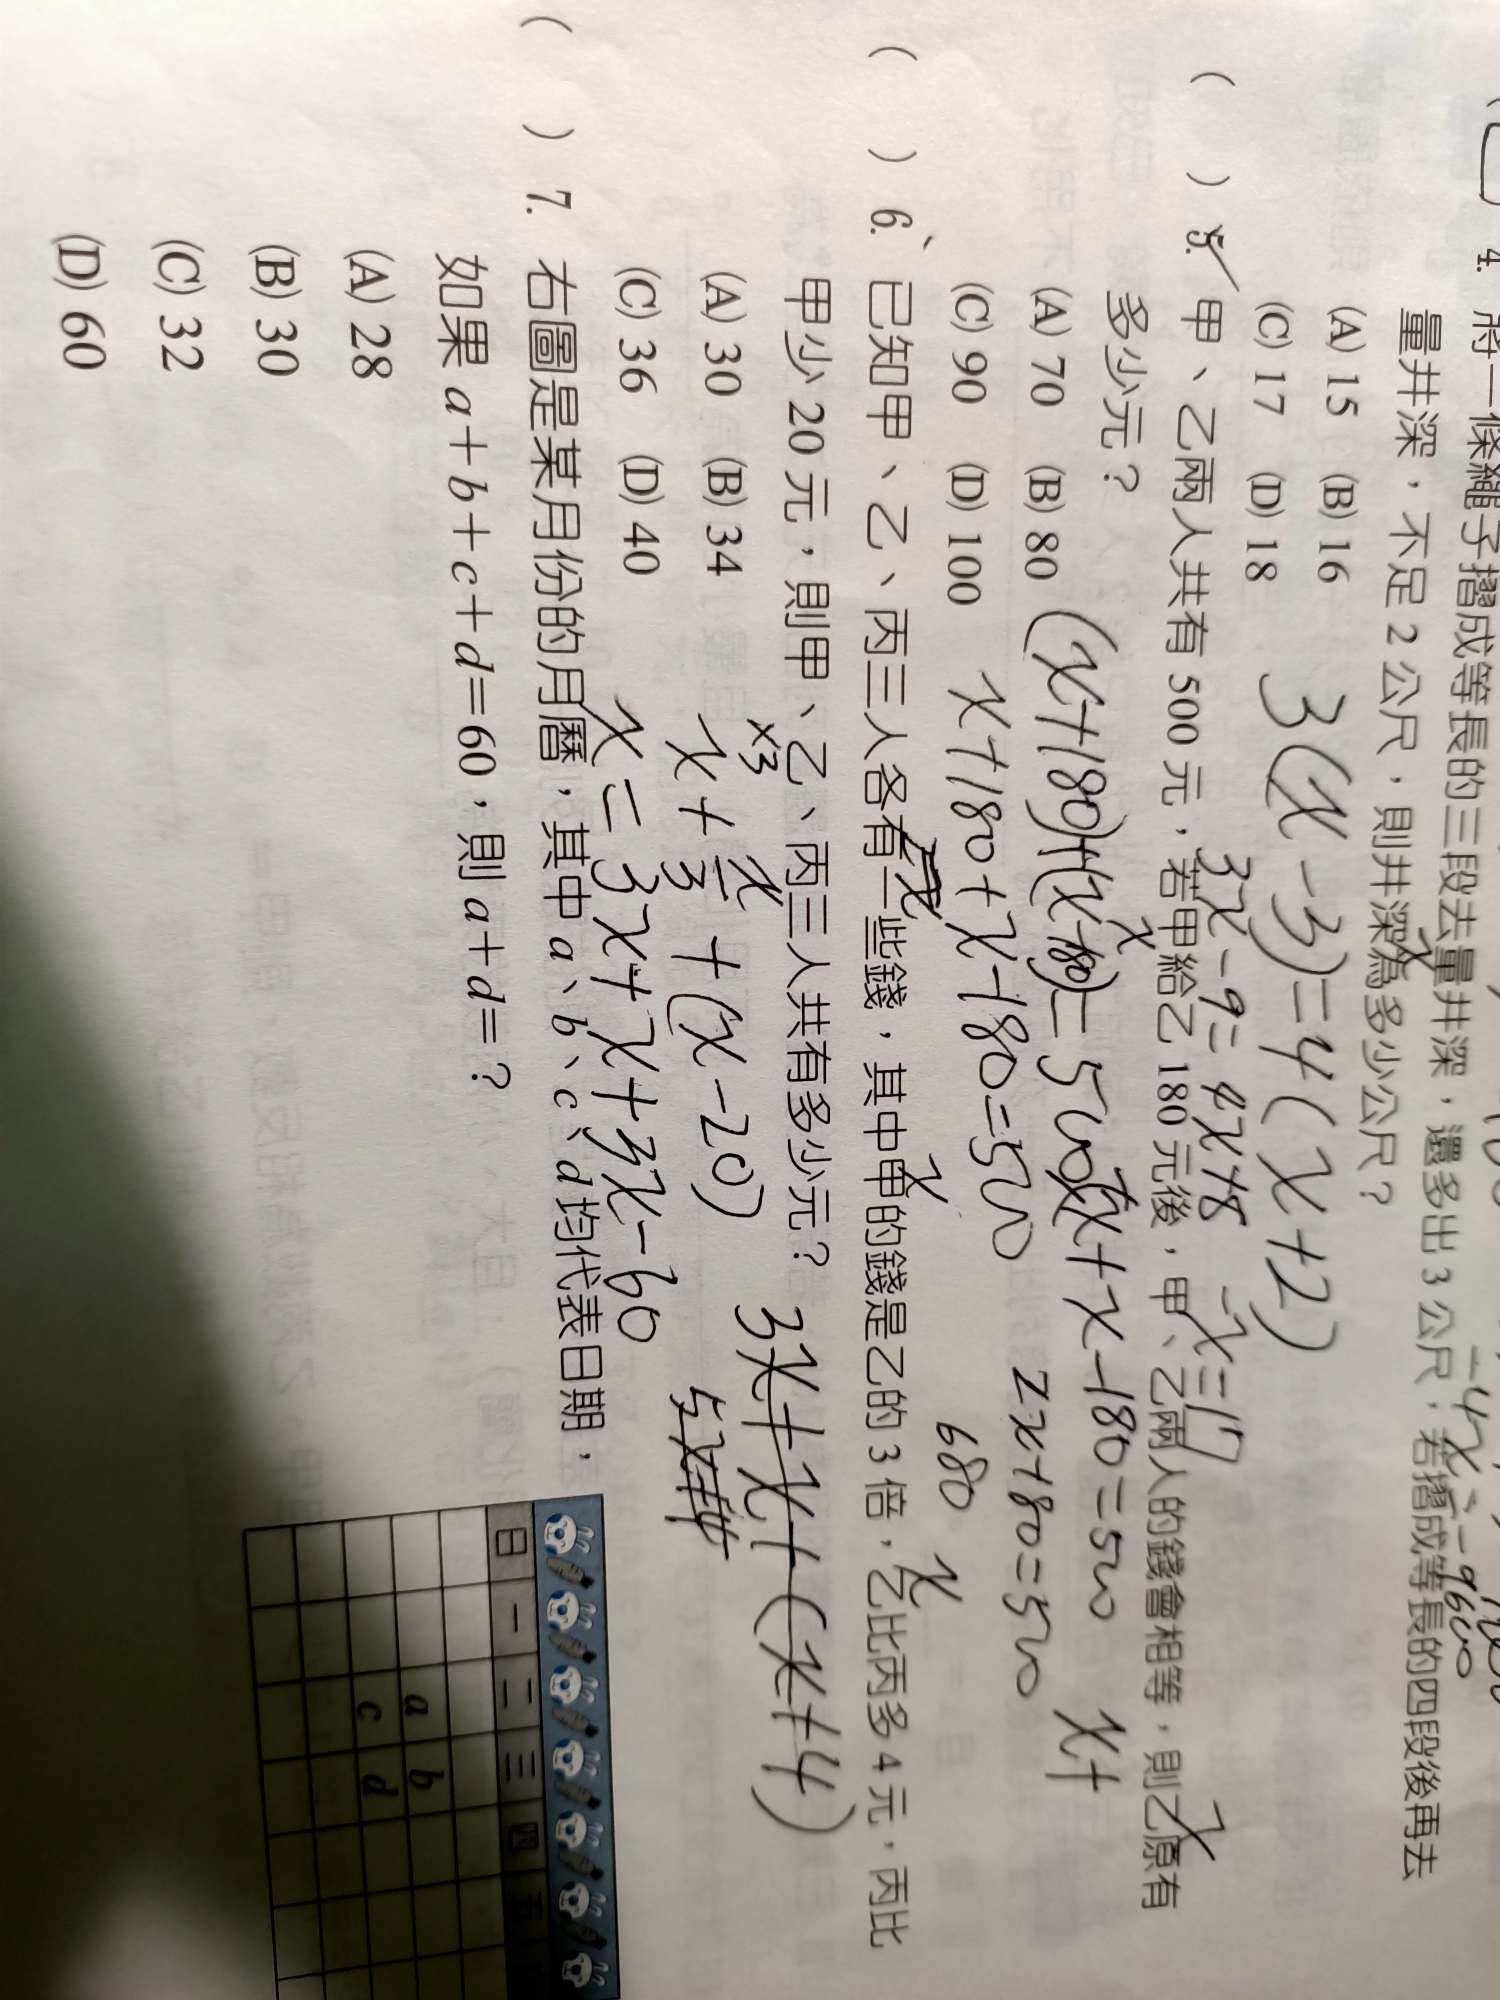 4. 將一條繩子摺成等長的三段去量井深，還多出 3 公尺；若摺成等長的四段後再去
量井深，不足 2 公尺，則井深為多少公尺？
(A) 15 (B) 16
(C) 17 (D) 18
3(x-3)=4(x+2)
3x-9=4x+8
-x=17
( ) 5. 甲、乙兩人共有 500 元，若甲給乙 180 元後，甲、乙兩人的錢會相等，則乙原有
多少元？
(A) 70 (B) 80
(C) 90 (D) 100
x+180+x-180=500
x+x-180=500
2x+80=500
680
x+
( ) 6. 已知甲、乙、丙三人各有一些錢，其中甲的錢是乙的 3 倍，乙比丙多 4 元，丙比
甲少 20 元，則甲、乙、丙三人共有多少元？
(A) 30 (B) 34
(C) 36 (D) 40
×3
x+x/3+(x-20)
3x+x+(x+4)
x=3x+x+3x-60
( ) 7. 右圖是某月份的月曆，其中 a、b、c、d 均代表日期，
如果 a+b+c+d=60，則 a+d=？
(A) 28
(B) 30
(C) 32
(D) 60
日 一 二 三 四 五
a b
c d